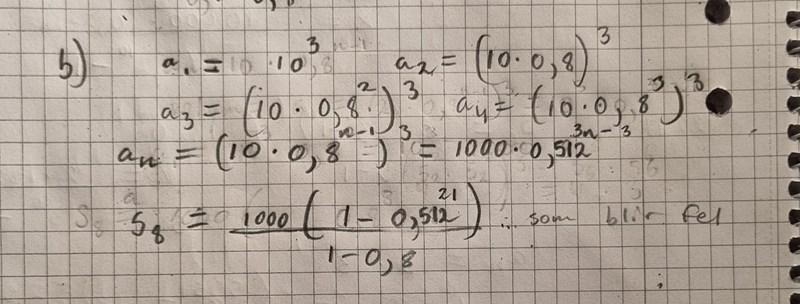 b) a₁ = 10³ a₂ = (10·0,8)³
a₃ = (10·0,8²)³ a₄ = (10·0,8³)³
aₙ = (10·0,8ⁿ⁻¹)³ = 1000·0,512³ⁿ⁻³
S₈ = 1000(1-0,512²¹) ... som blir fel
1-0,8